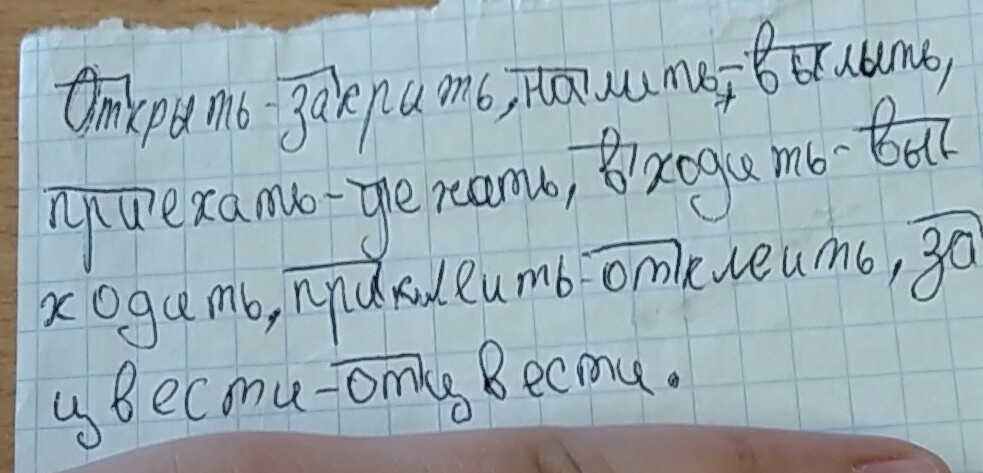 Открыть-закрить, налить-вылыть,
приехать-уехать, входить-вы
ходить, приклеить-отклеить, за
цвести-отцвести.